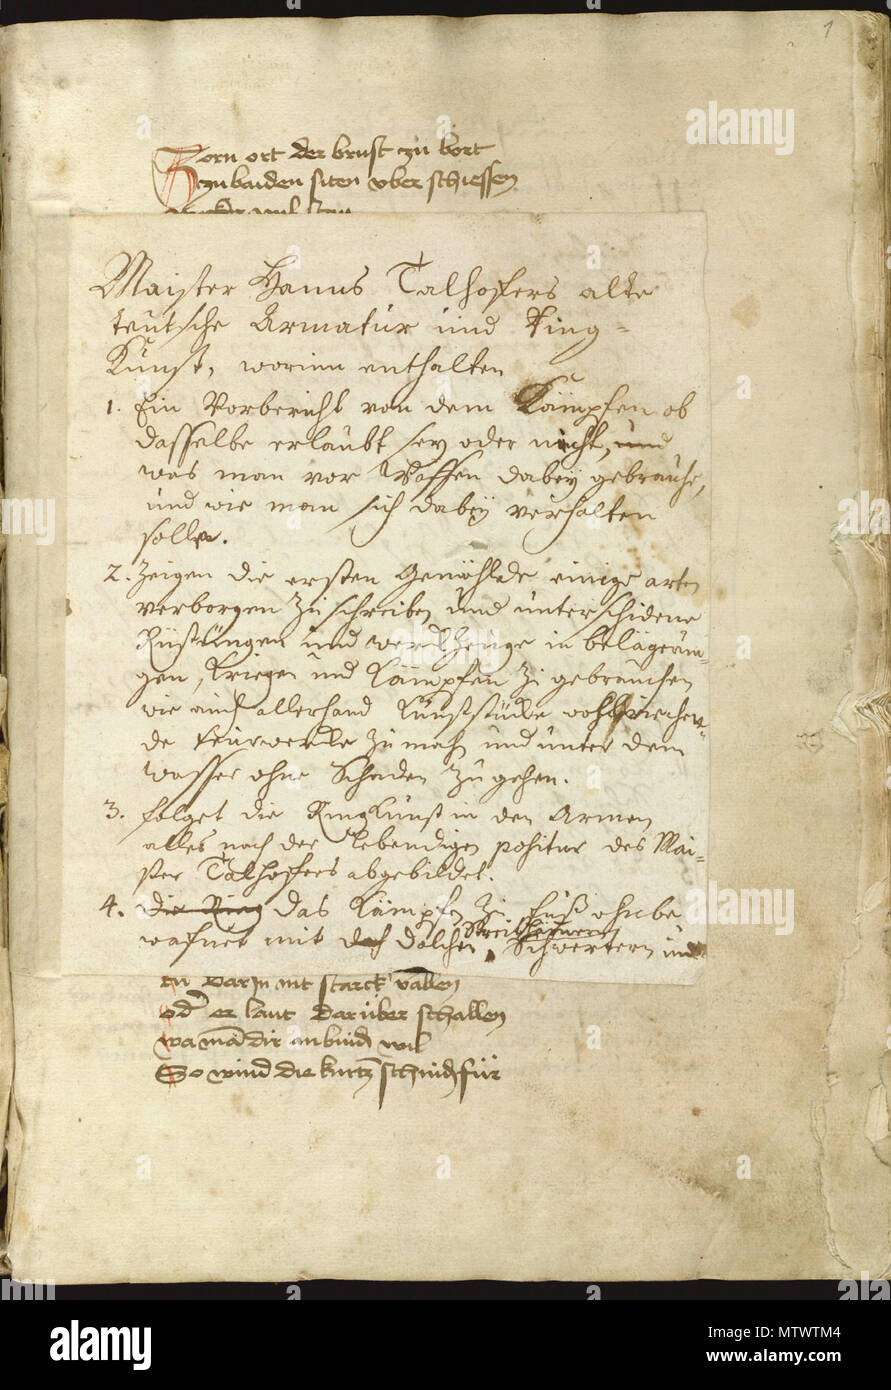 1
Zorn ort der brust zu bort
zu baiden siten vber schiessen
Maister Hanns Talhoffers alte
teutsche Armatur und Ring=
Kunst, worinn enthalten
1. Ein Vorbericht von dem Kämpfen ob
dasselbe erlaubt sey oder nicht, und
was man vor Waffen dabey gebrauche,
und wie man sich dabey verhalten
solle.
2. Zeigen die ersten Gemählde einige arten
verborgen zu schreiben und unterschidene
Rüstungen und werckhzeuge in belägerun=
gen, Kriegen und Kämpfen zu gebrauchen
wie auch allerhand Kunststücke wohlriechen=
de feurwercke zu mach und unter dem
wasser ohne Schaden zu gehen.
3. folget die Ringkunst in den Armen
alles nach der lebendigen positur des Mai=
ster Talhoffers abgebildet.
4. die Ring das Kämpfen zu fuß ohnbe
wafnet mit doch dolchen, Streithämern Schwertern und
darin nit starck vallen
od er lant darüber schallen
wa man dir anbind wil
So wind die kurtz schnid für
alamy
Image ID: MTWTM4
www.alamy.com